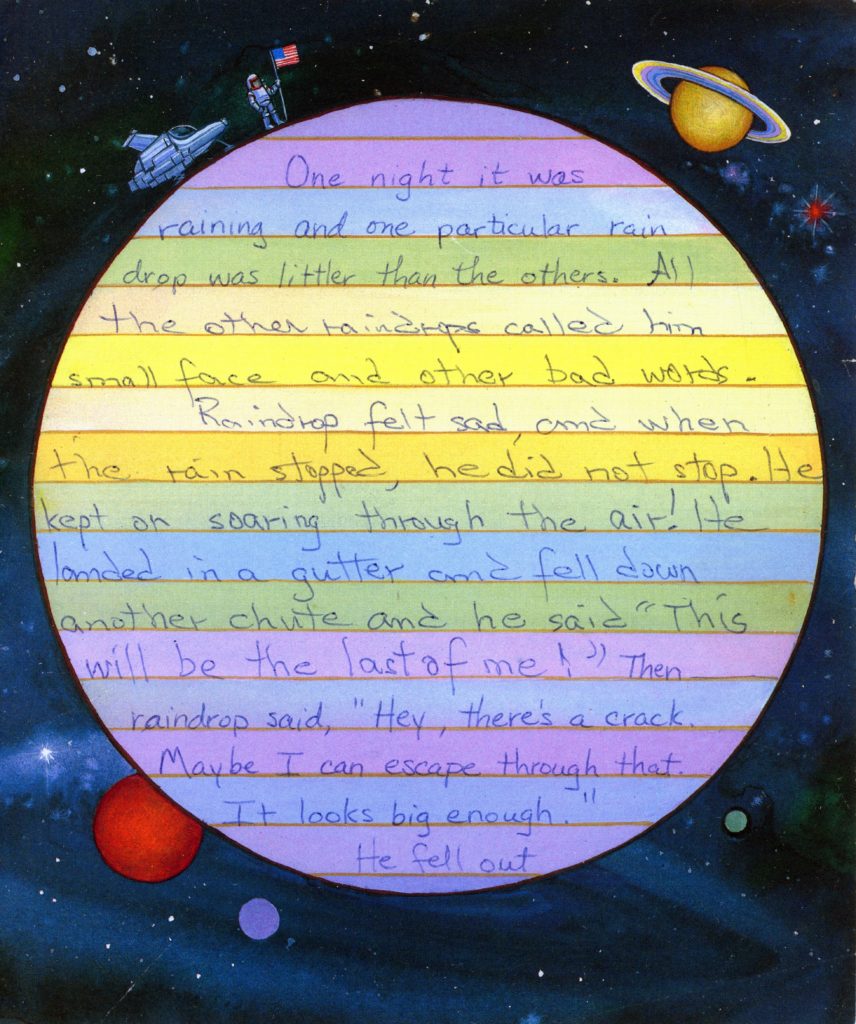 One night it was
raining and one particular rain
drop was littler than the others. All
the other raindrops called him
small face and other bad words.
Raindrop felt sad, and when
the rain stopped, he did not stop. He
kept on soaring through the air! He
landed in a gutter and fell down
another chute and he said "This
will be the last of me!" Then
raindrop said, "Hey, there's a crack.
Maybe I can escape through that.
It looks big enough."
He fell out